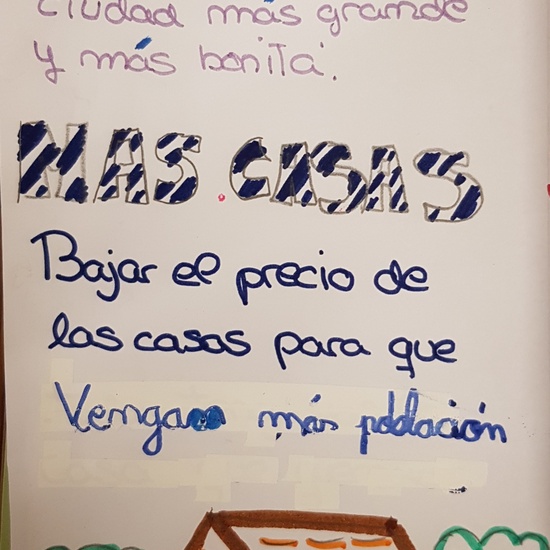 ciudad más grande
y más bonita.
MAS CASAS
Bajar el precio de
las casas para que
Venga más población